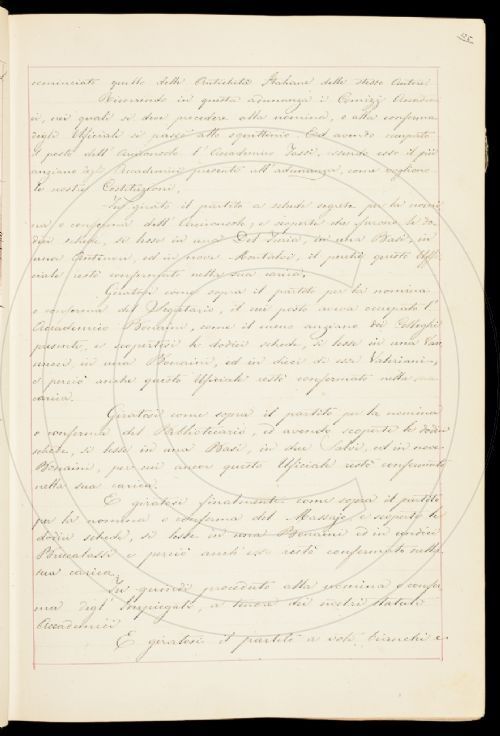 25
cominciato quello delle Antichità Italiane dello stesso Autore
Ricorrendo in questa adunanza i Comizj Accade
ci, nei quali si deve procedere alla nomina, o alla conferma
degli Ufficiali si passò allo squittinio. Ed avendo occupato
il posto dell' Arciconsolo l' Accademico Tassi, essendo esso il più
anziano degli Accademici presenti all' adunanza, come vogliono
le nostre Costituzioni,
Fu girato il partito a schede segrete per la nomi
na o conferma dell' Arciconsolo, e scoperte che furono le do
dici schede, si lesse in una Del Furia, in una Basi, in
una ed in nove Montalvi, il perchè questo Uffi
ciale restò confermato nella sua carica.
Giratosi come sopra il partito per la nomina
o conferma del Segretario, il cui posto aveva occupato l'
Accademico Bonaini, come il meno anziano dei Colleghi
presenti, e scopertesi le dodici schede, si lesse in una Van
nucci, in una Bonaini, ed in dieci di esse Valeriani,
e perciò anche questo Ufficiale restò confermato nella sua
carica.
Giratosi come sopra il partito per la nomina
o conferma del Bibliotecario, ed avendo scoperte le dodici
schede, si lesse in una Basi, in due Salvi, ed in nove
Bonaini, per cui ancor questo Ufficiale restò confermato
nella sua carica.
E giratosi finalmente come sopra il partito
per la nomina o conferma del Massajo e scoperte le
dodici schede, si lesse in una Bonaini ed in undici
Brucalassi e perciò anch' esso restò confermato nella
sua carica.
Fu quindi proceduto alla nomina o confer
ma degl' Impiegati, a tenore dei nostri statuti
Accademici
E giratosi il partito a voti bianchi e